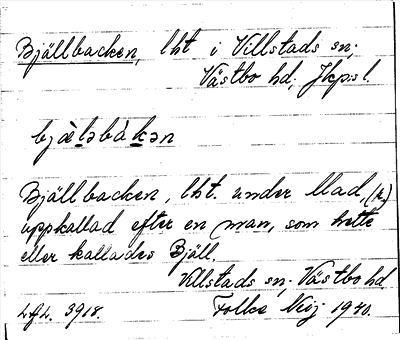 Bjällbacken, lht i Villstads sn;
Västbo hd; Jkpsl.
bjæ̀lәbàkәn
Bjällbacken, lht. under Mad, (k.)
uppkallad efter en man, som hette
eller kallades Bjäll.
Villstads sn; Västbo hd
L.f.L. 3918. Folke Neij 1940.